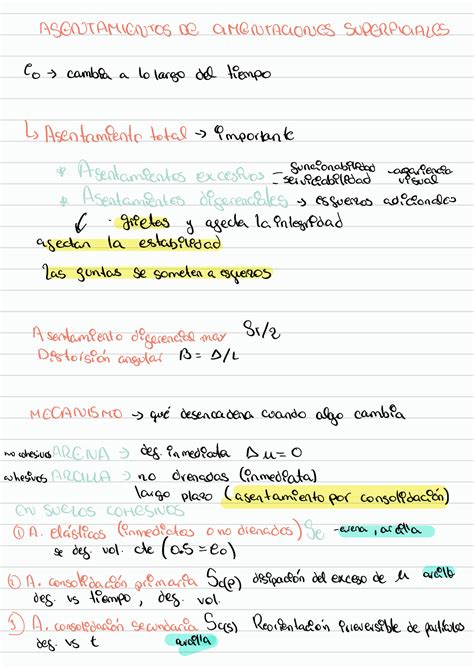 ASENTAMIENTOS DE CIMENTACIONES SUPERFICIALES
eo → cambia a lo largo del tiempo
↳ Asentamiento total → importante
* Asentamientos excesivos - funcionabilidad - apariencia visual
- serviciabilidad
* Asentamientos diferenciales → esfuerzos adicionales
↙ · grietas y afecta la integridad
afectan la estabilidad
las juntas se someten a esfuerzos
Asentamiento diferencial max Sr/2
Distorsión angular β = Δ/L
MECANISMO → qué desencadena cuando algo cambia
no cohesivos ARENA → def. inmediata Δu=0
cohesivos ARCILLA → no drenadas (inmediata)
largo plazo (asentamiento por consolidación)
EN SUELOS COHESIVOS
① A. elásticos (inmediatos o no drenados) Se - arena, arcilla
se def. vol. cte (0.5 = eo)
② A. consolidación primaria Sc(p) disipación del exceso de μ arcilla
def. vs tiempo, def. vol.
3) A. consolidación secundaria Sc(s) Reorientación irreversible de partículas
def. vs t arcilla